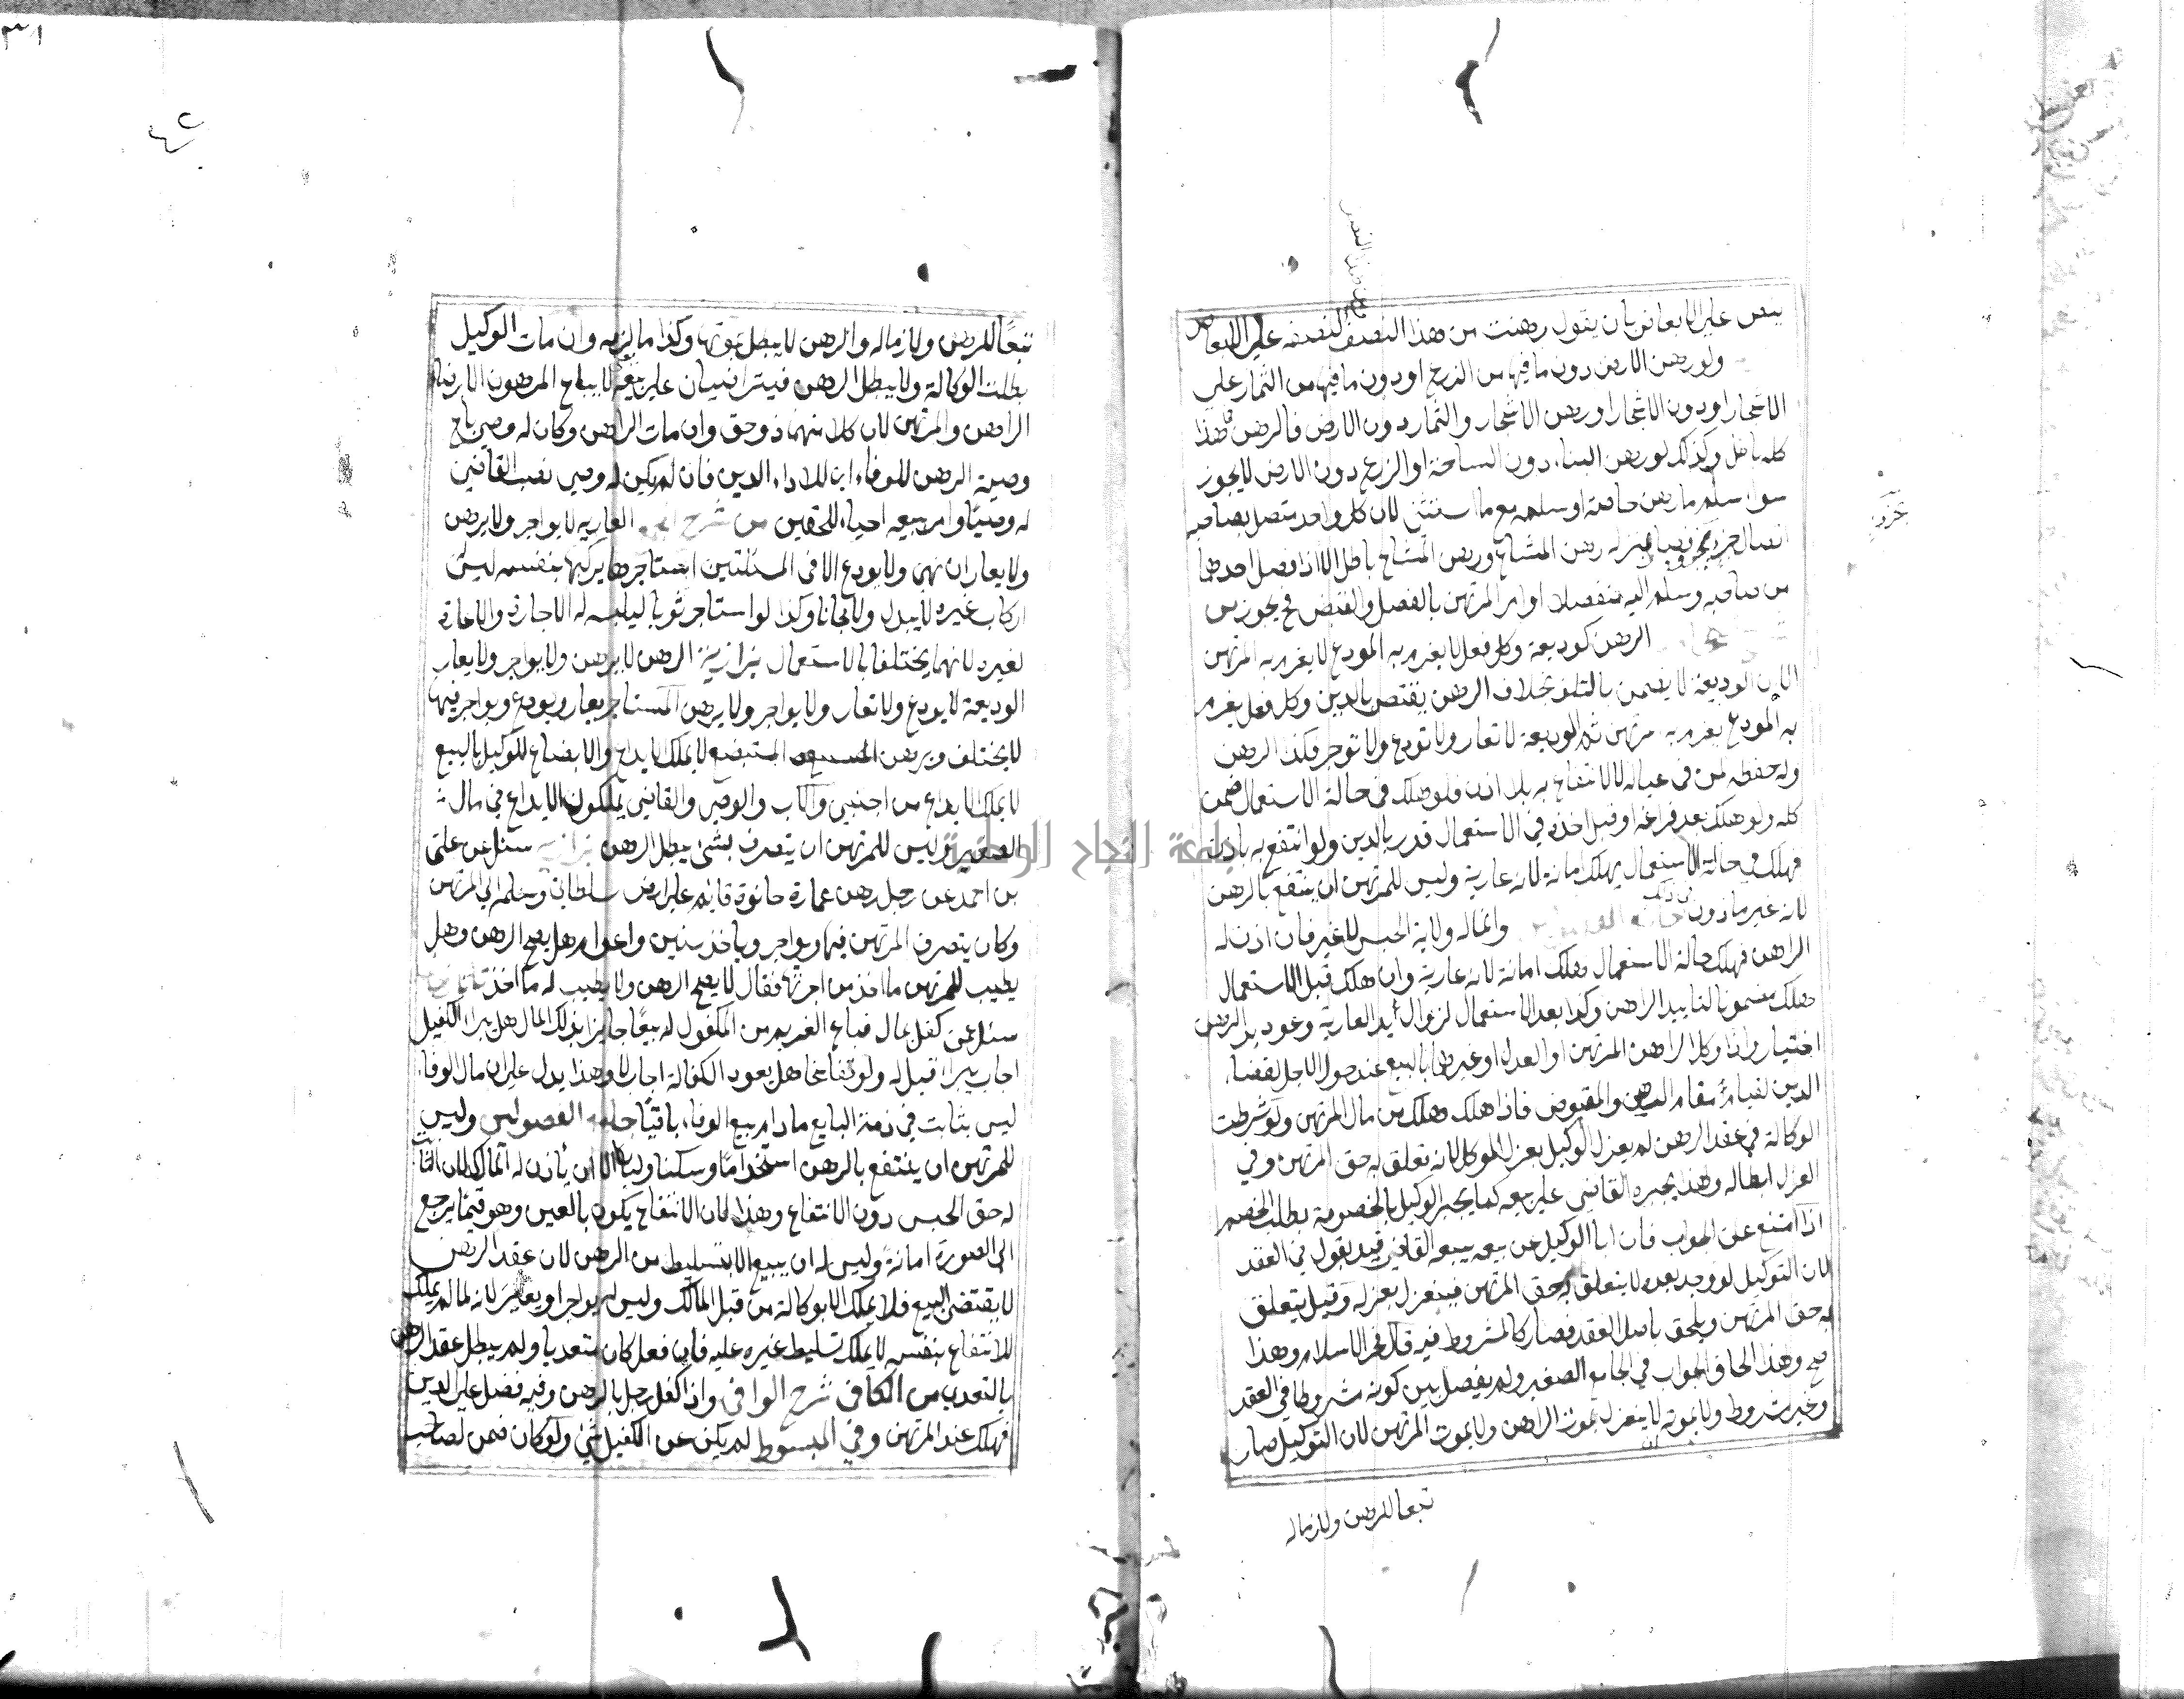 ينص على الابعاض بان يقول رهنت من هذا النصف نصفه على الابعاض
ولو رهن الارض دون ما فيها من الزرع او دون ما فيها من الثمار على
الاشجار او دون الاشجار او رهن الاشجار والثمار دون الارض فالرهن هذا
كله باطل وكذلك لو رهن البناء دون الساحة او الزرع دون الارض لا يجوز
سواء سلم ما رهن خاصة او سلمه مع ما استثنى لان كل واحد متصل بصاحبه
اتصال فصار بمنزلة رهن المشاع ورهن المشاع باطل الا اذا فصل احدهما
من صاحبه وسلم اليه منفصلا او امر المرتهن بالفصل والقبض فح يجوز من
الرهن كوديعة وكل فعل لا يغرم به المودع لا يغرم به المرتهن
الا ان الوديعة لا يضمن بالتلف بخلاف الرهن يقتص بالدين وكل فعل يغرم
به المودع يغرم به مرتهن ثم الوديعة لا تعار ولا تودع ولا توجر فكذا الرهن
وله حفظه لمن في عياله لا الانتفاع به بلا اذن فلو هلك في حالة الاستعمال ضمن
كله ولو هلك بعد فراغه او قبل اخذه في الاستعمال قدر بالدين ولو انتفع به باذن
فهلك في حالة الاستعمال يهلك امانة لانه عارية وليس للمرتهن ان ينتفع بالرهن
لانه غير ماذون في ذلك وانما له ولاية الحبس لا غير فان اذن له
الراهن فهلك حالة الاستعمال هلك امانة لانه عارية وان هلك قبل الاستعمال
هلك مضمونا لتاييد الراهن وكذا بعد الاستعمال لزوال يد العارية وعود يد الرهن
اختيار واذا وكل الراهن المرتهن او العدل او غيرهما بالبيع عند حلول الاجل لقضاء
الدين لقيامه مقام الرهن والمقبوض فاذا هلك هلك من مال المرتهن ولو شرطت
الوكالة في عقد الرهن لم يعزل الوكيل بعزل الموكل لانه تعلق به حق المرتهن وفي
العزل ابطاله وهذا يجبره القاضي على بيعه كما يجبر الوكيل بالخصومة بطلب الخصم
اذا امتنع عن الجواب فان ابا الوكيل عن بيعه يبيعه القاضي قيد بقوله في العقد
لان التوكيل لو وجد بعده لا يتعلق به حق المرتهن فينعزل بعزله وقيل يتعلق
به حق المرتهن ويلحق باصل العقد فصار كالمشروط فيه قال فخر الاسلام وهذا
صح وهذا الحاق الجواب في الجامع الصغير ولم يفصل بين كونه مشروطا في العقد
وغير مشروط ولا بموته لا ينعزل بموت الراهن ولا بموت المرتهن لان التوكيل صار
تبعا للرهن ولازما له
تبعا للرهن ولازما له والرهن لا يبطل بموتها وكذا ما لزمه وان مات الوكيل
بطلت الوكالة ولا يبطل الرهن فيتراضيان على بيعه لا يباع المرهون الا برضاء
الراهن والمرتهن لان كلا منهما ذو حق وان مات الراهن وكان له وصي باع
وصيه الرهن للوفاء اي لاداء الدين فان لم يكن له وصي نصب القاضي
له وصيا وامر ببيعه احياء للحقين من شرح العارية لا يواجر ولا يرهن
ولا يعار ان نهى ولا يودع الا في المسئلتين استاجرها يركبها بنفسه ليس
اركاب غيره لا ببدل ولا مجانا وكذا لو استاجر ثوبا ليلبسه له الاجارة والاعارة
لغيره لانهما يختلفا بالاستعمال بزازية الرهن لا يرهن ولا يواجر ولا يعار
الوديعة لا يودع ولا تعار ولا يواجر ولا يرهن المستاجر يعار ويودع ويواجر فيما
لا يختلف ويرهن المستبضع لا يملك الايداع والابضاع للوكيل بالبيع
لا يملك الايداع من اجنبي والاب والوصي والقاضي يملكون الايداع في مال
الصغير وليس للمرتهن ان يتصرف بشئ يبطل الرهن بزازية سئل عن على
بن احمد عن رجل رهن عمارة حانوة قايم على ارض سلطان وسلم الى المرتهن
وكان يتصرف المرتهن فيها ويواجر وياخذ سنين واعوام هل يصح الرهن وهل
يطيب للمرتهن ما اخذ من اجرتها فقال لا يصح الرهن ولا يطيب له ما اخذ
سئل عمن كفل بمال فباع الغريم من المكفول له بيعا جايزا بذلك المال هل يبرا الكفيل
اجاب يبرا قيل له ولو تفاسخا هل يعود الكفالة اجاب لا وهذا يدل على ان مال الوفاء
ليس بثابت في ذمة البايع ما دام بيع الوفاء باقيا جامع الفصولين وليس
للمرتهن ان ينتفع بالرهن استخداما وسكنا ولبسا الا ان ياذن له المالك لان الثابت
له حق الحبس دون الانتفاع وهذا لان الانتفاع يكون بالعين وهو فيما يرجع
الى الصورة امانة وليس له ان يبيع الا بتسليط من الرهن لان عقد الرهن
لا يقتضي البيع فلا يملك الا بوكالة من قبل المالك وليس له يواجر او يعير لانه لما لم يملك
للانتفاع بنفسه لا يملك تسليط غيره عليه فان فعل كان متعديا ولم يبطل عقد الرهن
بالتعدي من الكافي شرح الوافي واذا كفل رجل بالرهن وفيه فضل على الدين
فهلك عند المرتهن وفي المبسوط لم يكن عن الكفيل شئ ولو كان ضمن لصاحب
جامعة النجاح الوطنية